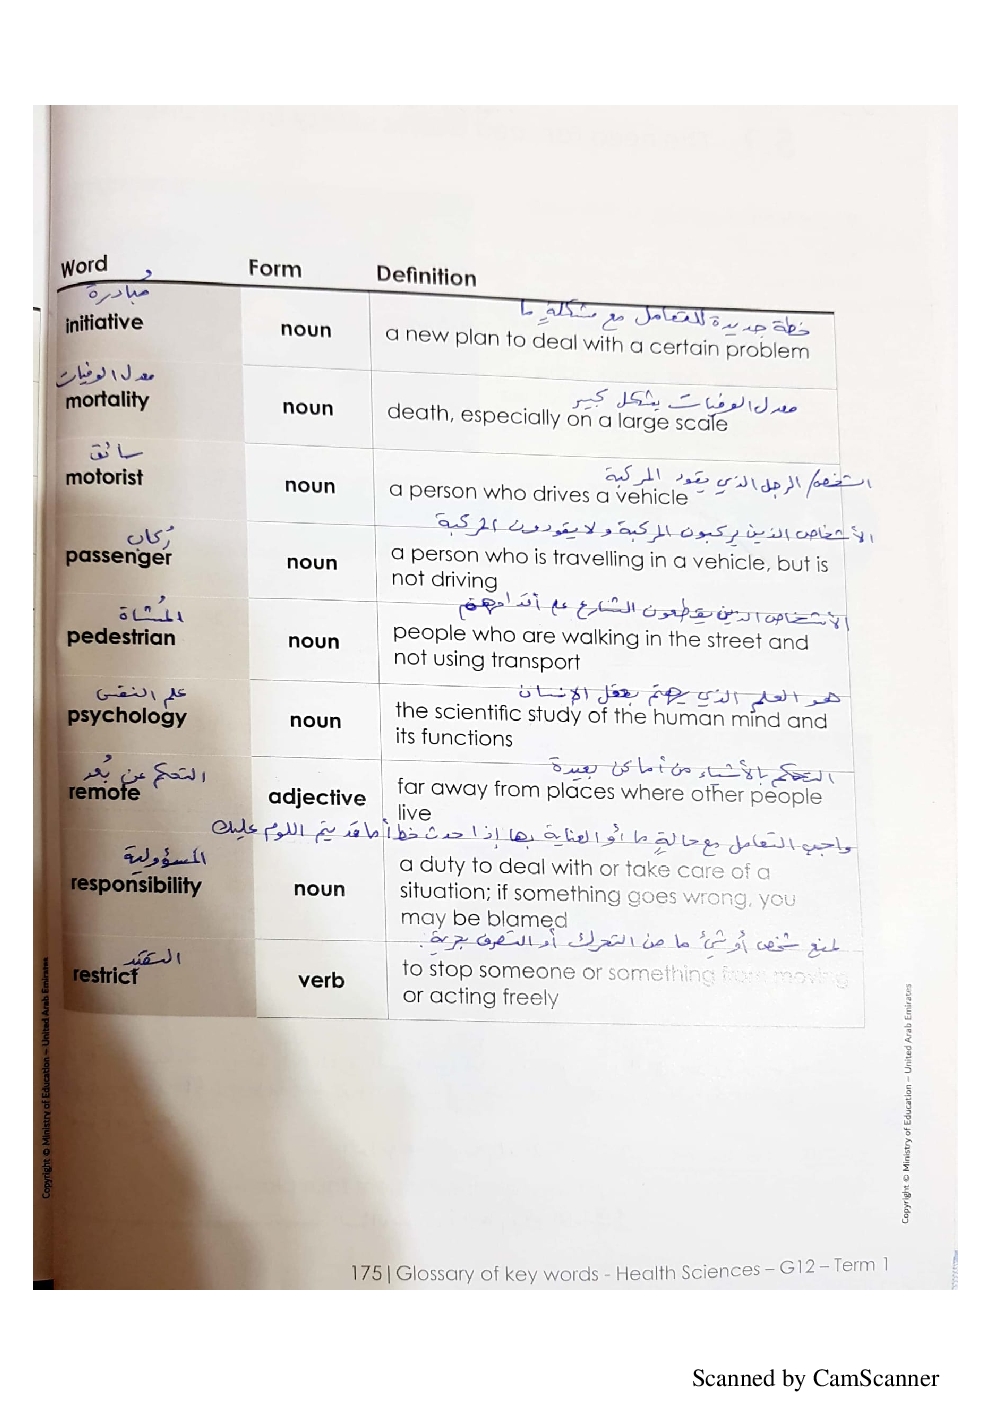 Word
Form
Definition
مبادرة
خطة جديدة للتعامل مع مشكلةٍ ما
initiative
noun
a new plan to deal with a certain problem
معدل الوفيات
معدل الوفيات بشكل كبير
mortality
noun
death, especially on a large scale
سائق
الشخص/ الرجل الذي يقود المركبة
motorist
noun
a person who drives a vehicle
رُكاب
الأشخاص الذين يركبون المركبة ولا يقودون المركبة
passenger
noun
a person who is travelling in a vehicle, but is
not driving
المُشاة
الأشخاص الذين يقطعون الشارع على أقدامهم
pedestrian
noun
people who are walking in the street and
not using transport
علم النفس
هو العلم الذي يهتم بعقل الإنسان
psychology
noun
the scientific study of the human mind and
its functions
التحكم عن بُعد
التحكم بالأشياء من أماكن بعيدة
remote
adjective
far away from places where other people
live
واجب التعامل مع حالةٍ ما أو العناية بها إذا حدث خطأ ما قد يتم اللوم عليك
المسؤولية
responsibility
noun
a duty to deal with or take care of a
situation; if something goes wrong, you
may be blamed
لمنع شخص أو شيءٍ ما من التحرك أو التصرف بحرية.
restrict
verb
to stop someone or something from moving
or acting freely
Copyright © Ministry of Education – United Arab Emirates
Copyright © Ministry of Education – United Arab Emirates
175 | Glossary of key words - Health Sciences – G12 – Term 1
Scanned by CamScanner